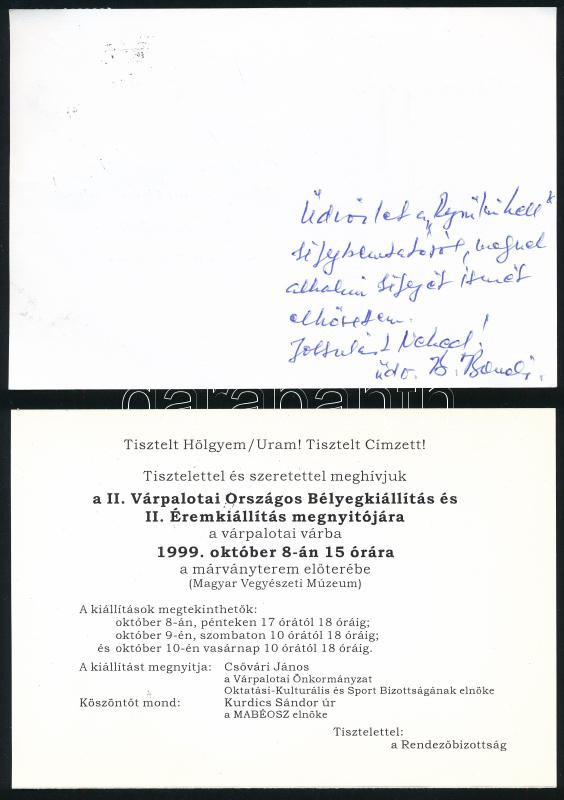 Üdvözlet a
alkalmi ismét
elkövetem.
Neked!
üdv. B. Bandi.
darabanth
Tisztelt Hölgyem/Uram! Tisztelt Címzett!
Tisztelettel és szeretettel meghívjuk
a II. Várpalotai Országos Bélyegkiállítás és
II. Éremkiállítás megnyitójára
a várpalotai várba
1999. október 8-án 15 órára
a márványterem előterébe
(Magyar Vegyészeti Múzeum)
A kiállítások megtekinthetők:
október 8-án, pénteken 17 órától 18 óráig;
október 9-én, szombaton 10 órától 18 óráig;
és október 10-én vasárnap 10 órától 18 óráig.
A kiállítást megnyitja: Csővári János
a Várpalotai Önkormányzat
Oktatási-Kulturális és Sport Bizottságának elnöke
Köszöntőt mond: Kurdics Sándor úr
a MABÉOSZ elnöke
Tisztelettel:
a Rendezőbizottság